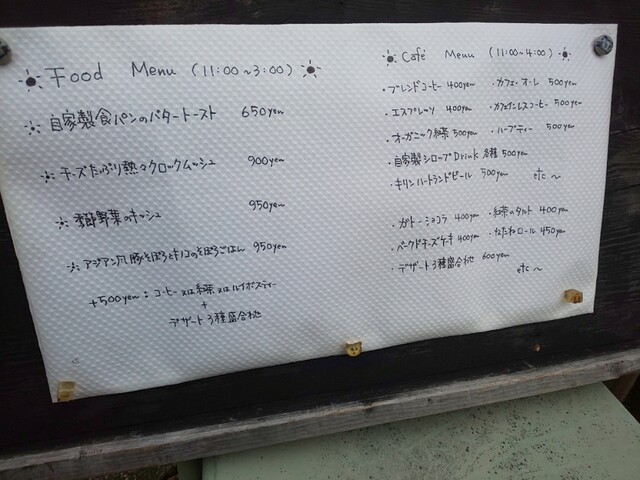 Food Menu (11:00~3:00)
自家製食パンのバタートースト 650yen
チーズたっぷり熱々クロックムッシュ 900yen
季節野菜のキッシュ 950yen
アジアン風豚そぼろとキノコのそぼろごはん 950yen
+500yen: コーヒー又は紅茶又はルイボスティー
+
デザート3種盛合わせ
Café Menu (11:00~4:00)
・ブレンドコーヒー 400yen ・カフェ・オ・レ 500yen
・エスプレッソ 400yen ・カフェインレスコーヒー 500yen
・オーガニック紅茶 500yen ・ハーブティー 500yen
・自家製シロップDrink 各種 500yen
・キリンハートランドビール 500yen etc~
・ガトーショコラ 400yen ・紅茶のタルト 400yen
・ベークドチーズケーキ 400yen ロール 450yen
・デザート3種盛合わせ 600yen etc~